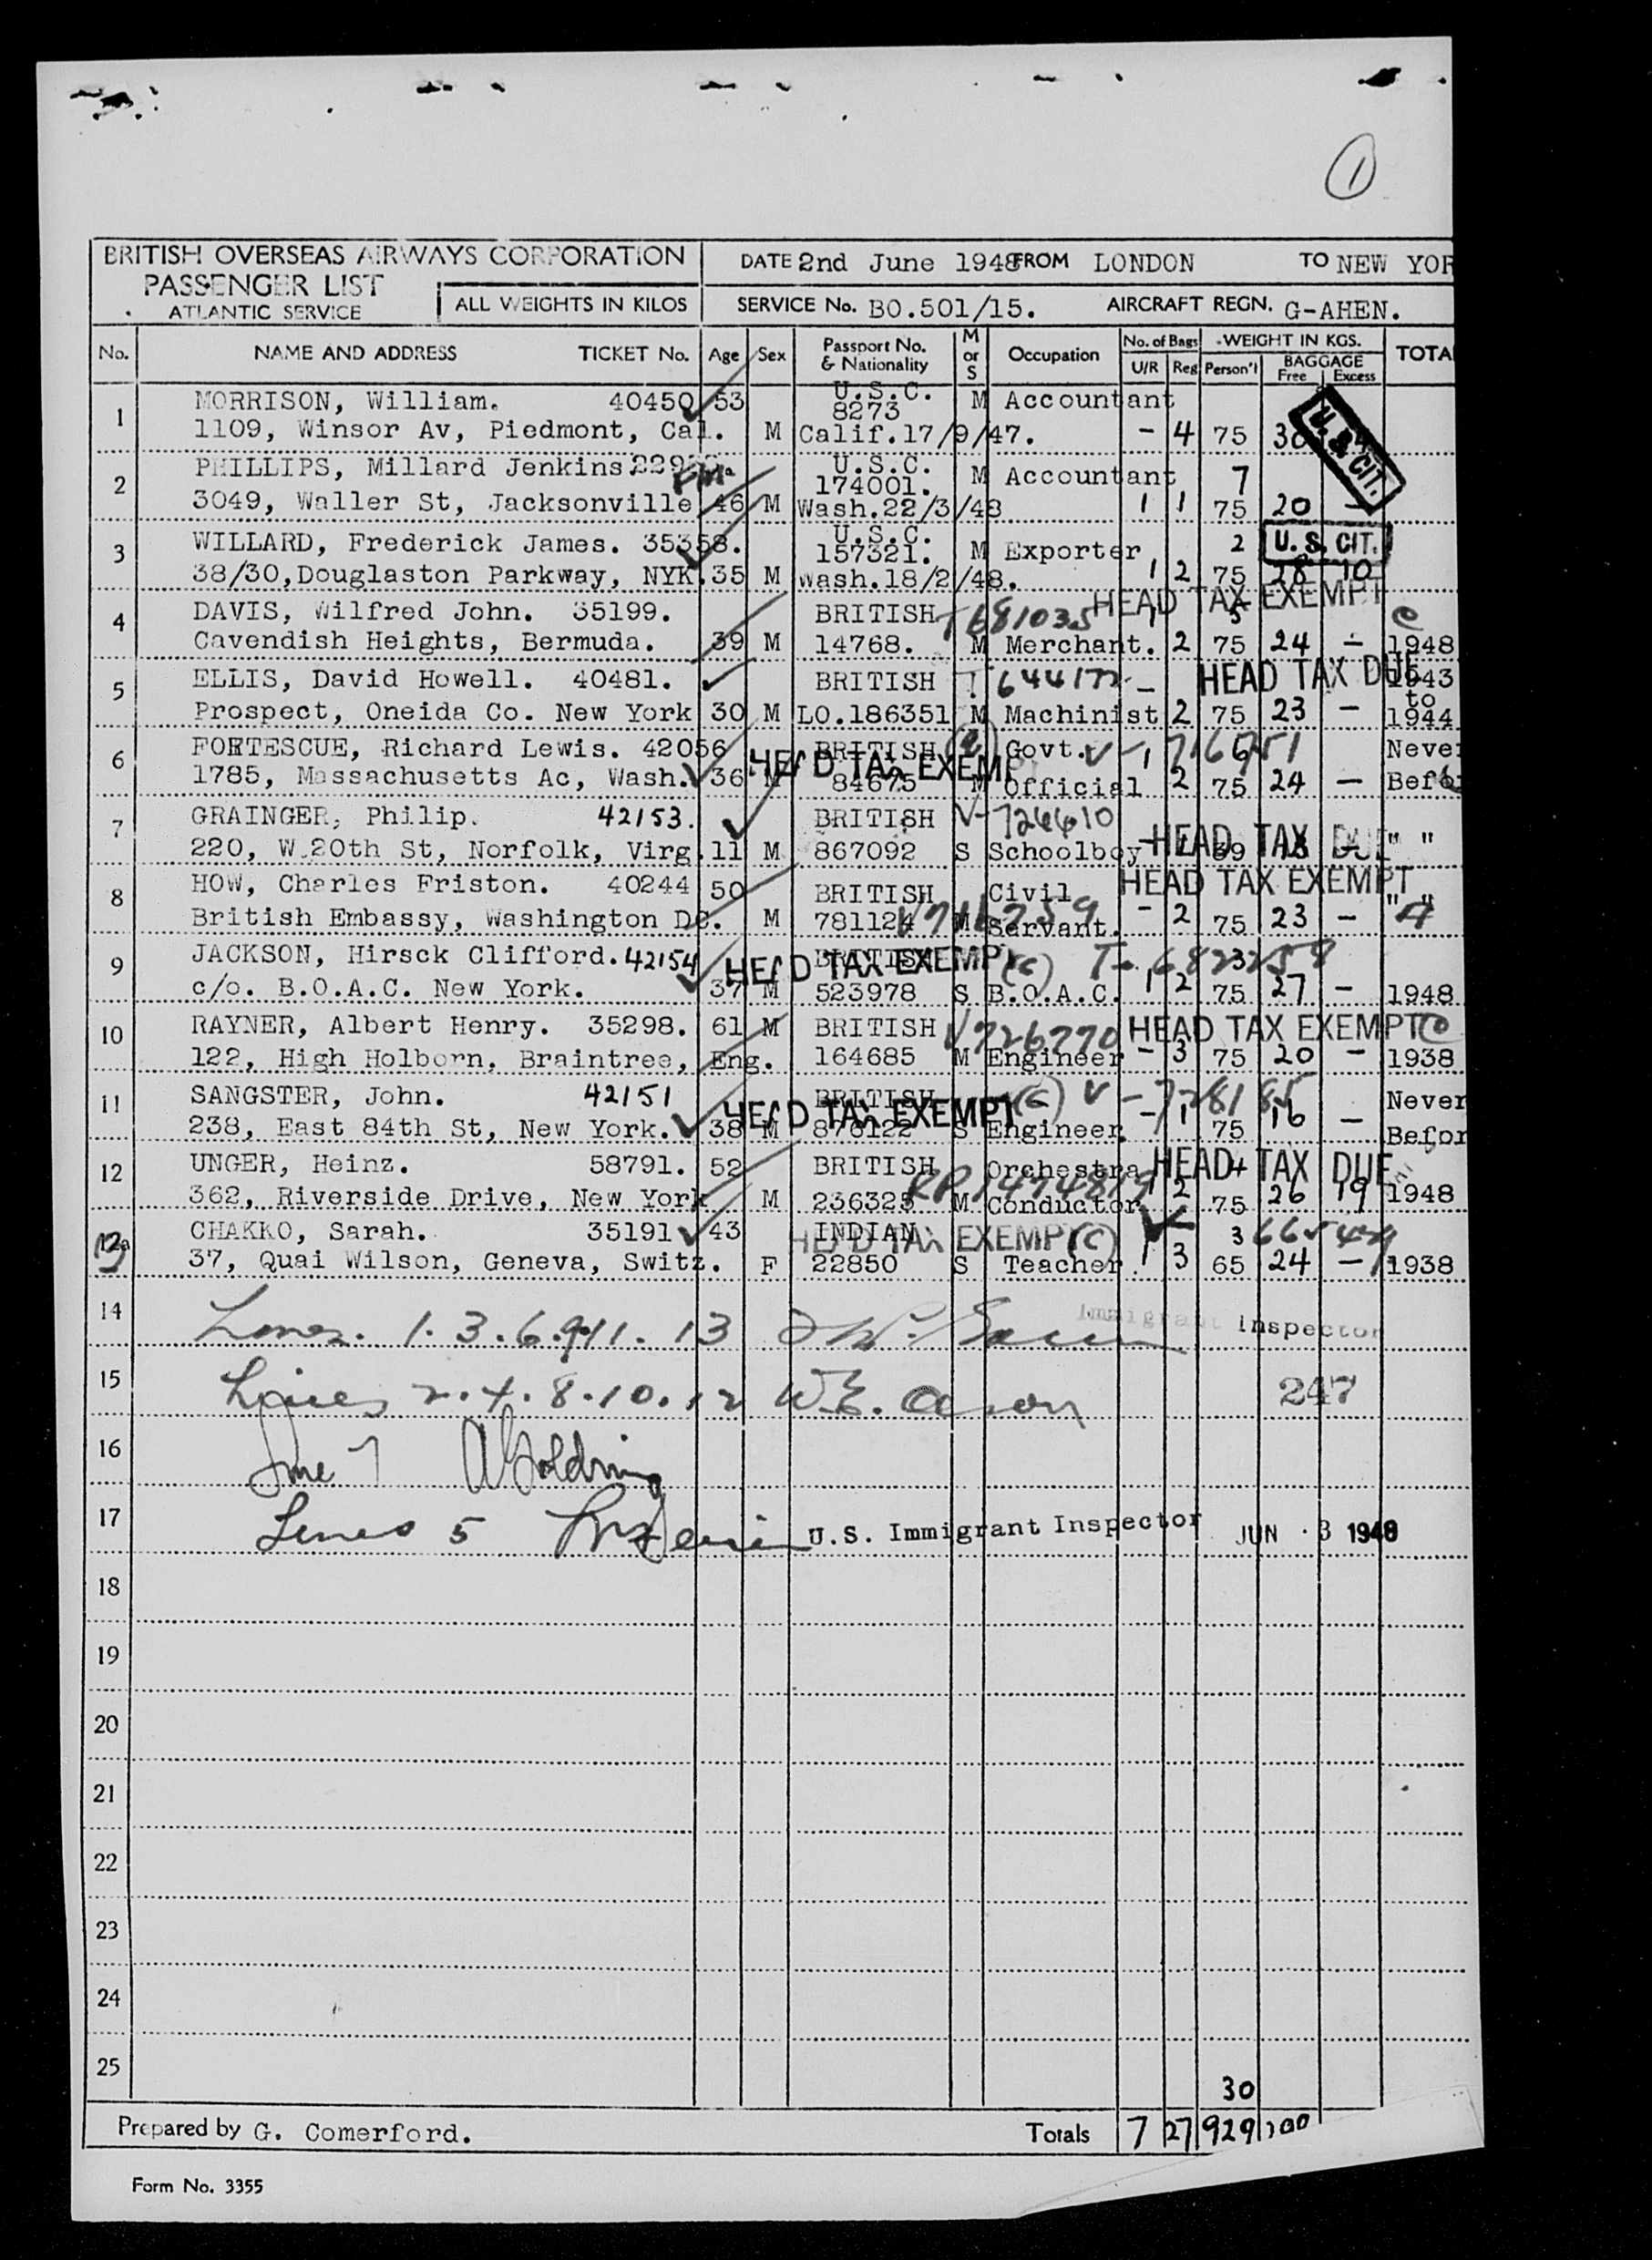 1
BRITISH OVERSEAS AIRWAYS CORPORATION
PASSENGER LIST
ATLANTIC SERVICE
ALL WEIGHTS IN KILOS
DATE 2nd June 1948 FROM LONDON TO NEW YOR
SERVICE No. BO.501/15. AIRCRAFT REGN. G-AHEN.
No. NAME AND ADDRESS TICKET No. Age Sex Passport No. & Nationality M or S Occupation No. of Bags U/R Reg WEIGHT IN KGS. Person'l BAGGAGE Free Excess TOTA
1 MORRISON, William. 40450 53 U.S.C. 8273 M Accountant
1109, Winsor Av, Piedmont, Cal. M Calif.17/9/47. - 4 75 U.S. CIT.
2 PHILLIPS, Millard Jenkins U.S.C. 174001. M Accountant 7
3049, Waller St, Jacksonville 46 M Wash.22/3/48 1 1 75 20 -
3 WILLARD, Frederick James. 35358. U.S.C. 157321. M Exporter 2 U.S. CIT.
38/30,Douglaston Parkway, NYK.35 M Wash.18/2/48. 1 2 75 28 10
4 DAVIS, Wilfred John. 35199. BRITISH T 681035 HEAD TAX EXEMPT
Cavendish Heights, Bermuda. 39 M 14768. M Merchant. 2 75 24 - 1948
5 ELLIS, David Howell. 40481. BRITISH T 644172 - HEAD TAX DUE 1943 to
Prospect, Oneida Co. New York 30 M LO.186351 M Machinist 2 75 23 - 1944
6 FORTESCUE, Richard Lewis. 42056 BRITISH Govt. V-716751 Never
1785, Massachusetts Ac, Wash. 36 M HEAD TAX EXEMPT 84675 M Official 2 75 24 - Befo
7 GRAINGER, Philip. 42153. BRITISH V-724610
220, W.20th St, Norfolk, Virg.11 M 867092 S Schoolboy HEAD TAX DUE " "
8 HOW, Charles Friston. 40244 50 BRITISH Civil HEAD TAX EXEMPT
British Embassy, Washington DC. M 781124 M Servant. - 2 75 23 - " "
9 JACKSON, Hirsck Clifford. 42154 BRITISH HEAD TAX EXEMPT (c)
c/o. B.O.A.C. New York. 37 M 523978 S B.O.A.C. 1 2 75 27 - 1948
10 RAYNER, Albert Henry. 35298. 61 M BRITISH V726770 HEAD TAX EXEMPT
122, High Holborn, Braintree, Eng. 164685 M Engineer - 3 75 20 - 1938
11 SANGSTER, John. 42151 BRITISH (c) V-728185 Never
238, East 84th St, New York. 38 M HEAD TAX EXEMPT 876122 S Engineer - 1 75 16 - Befor
12 UNGER, Heinz. 58791. 52 BRITISH Orchestra HEAD TAX DUE
362, Riverside Drive, New York M 236325 M Conductor 2 75 26 19 1948
12a 13 CHAKKO, Sarah. 35191 43 INDIAN HEAD TAX EXEMPT (c) 3
37, Quai Wilson, Geneva, Switz. F 22850 S Teacher. 1 3 65 24 - 1938
14 Lines. 1.3.6.9.11.13 Immigrant Inspector
15 Lines 2.4.8.10.12 247
16 Line 7 A Goldring
17 Lines 5 U.S. Immigrant Inspector JUN 3 1948
18
19
20
21
22
23
24
25 30
Prepared by G. Comerford. Totals 7 27 929
Form No. 3355